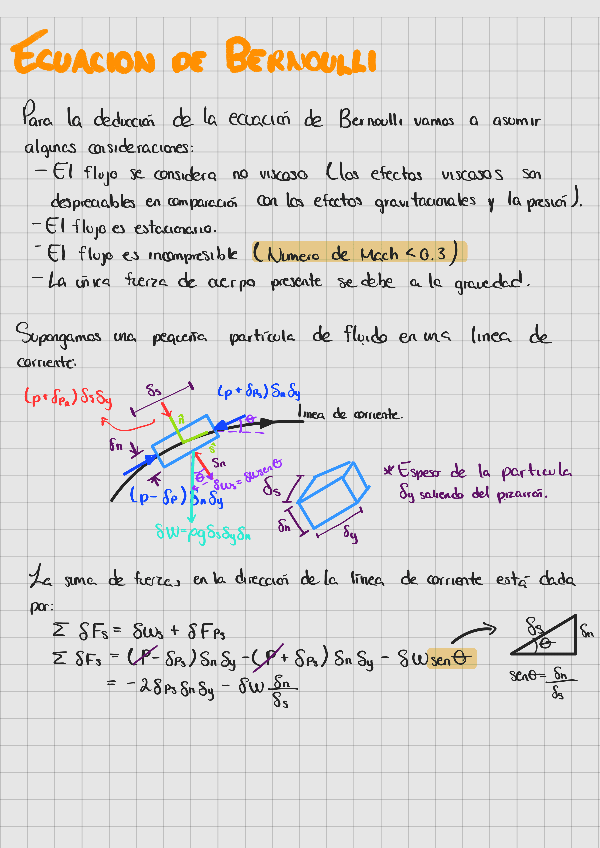 ECUACION DE BERNOULLI
Para la deducción de la ecuación de Bernoulli vamos a asumir
algunas consideraciones:
- El flujo se considera no viscoso (los efectos viscosos son
despreciables en comparación con los efectos gravitacionales y la presión).
- El flujo es estacionario.
- El flujo es incompresible (Numero de Mach < 0.3)
- La única fuerza de cuerpo presente se debe a la gravedad.
Supongamos una pequeña partícula de fluido en una linea de
corriente.
(p + δPn) δs δy
δs
(p + δPs) δn δy
linea de corriente.
n
θ
s
δn
δn
θ
δWs = δW senθ
(p - δp) δn δy
δW = ρg δs δy δn
δs
δn
δy
* Espesor de la particula
δy saliendo del pizarrón.
La suma de fuerzas en la dirección de la línea de corriente está dada
por:
Σ δFs = δWs + δFps
Σ δFs = (P - δPs) δn δy - (P + δPs) δn δy - δW senθ
= -2 δPs δn δy - δW δn/δs
δs
δn
θ
senθ = δn/δs